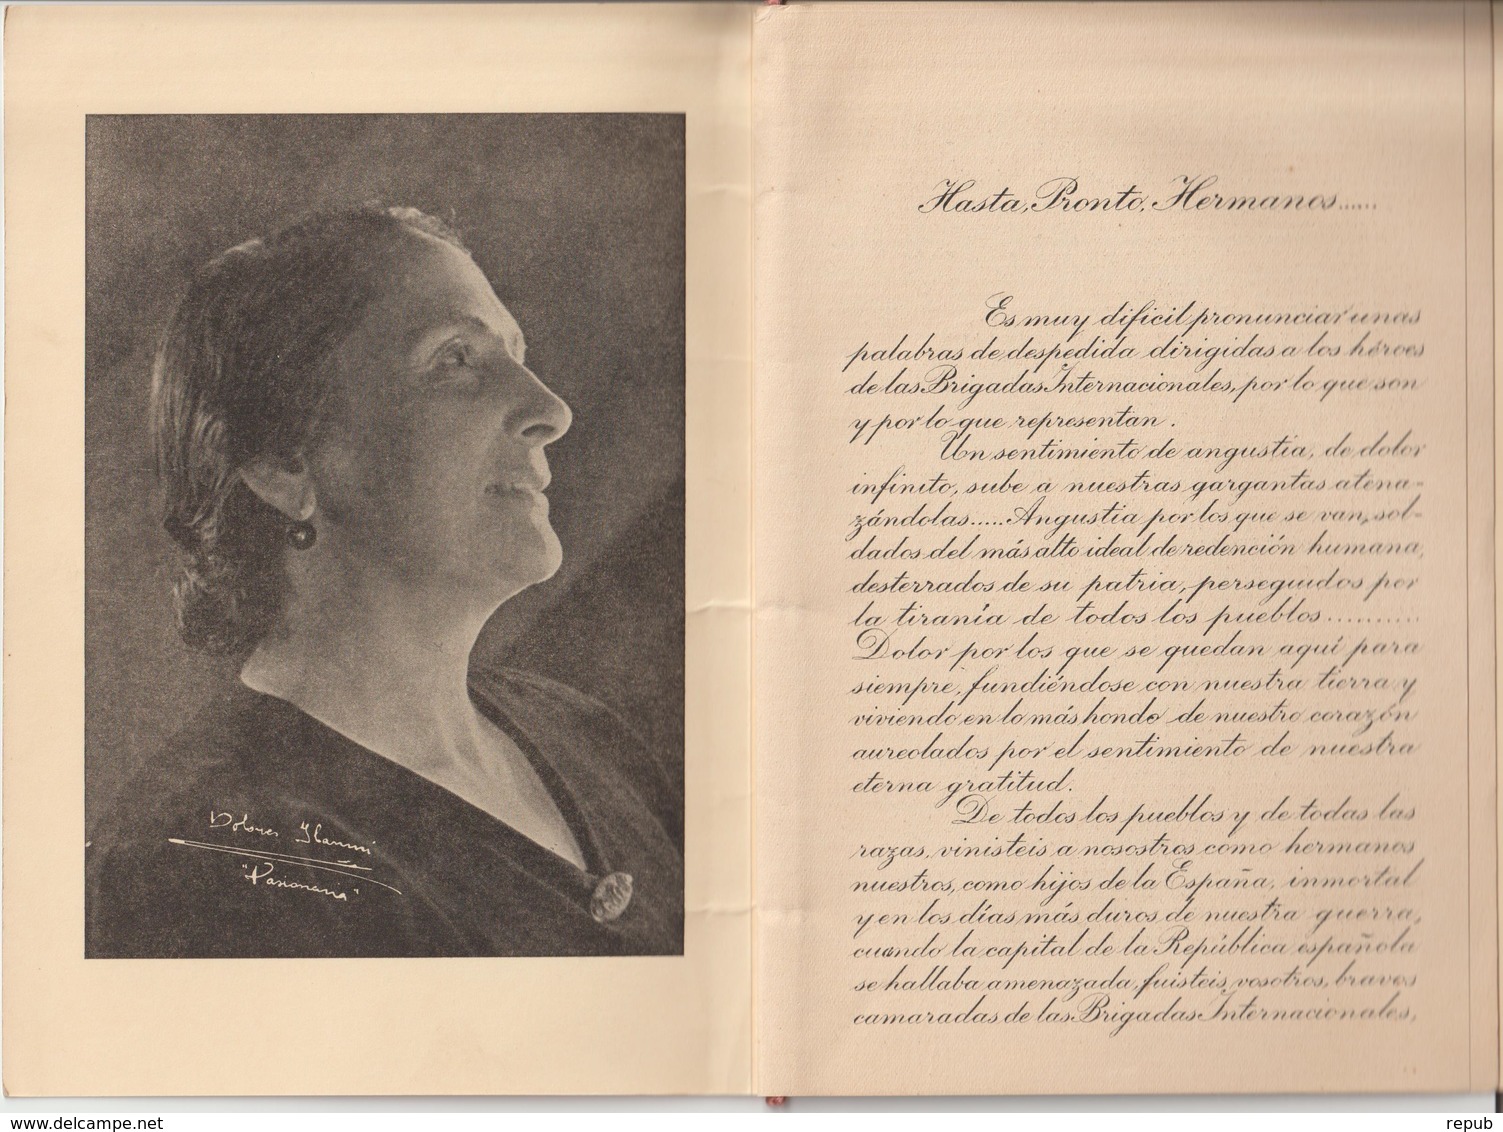 Dolores Ibarruri
"Pasionaria"
Hasta, Pronto, Hermanos......
Es muy difícil pronunciar unas
palabras de despedida dirigidas a los héroes
de las Brigadas Internacionales, por lo que son
y por lo que representan.
Un sentimiento de angustia, de dolor
infinito, sube a nuestras gargantas atena-
zándolas..... Angustia por los que se van, sol-
dados del más alto ideal de redención humana,
desterrados de su patria, perseguidos por
la tiranía de todos los pueblos..........
Dolor por los que se quedan aquí para
siempre, fundiéndose con nuestra tierra y
viviendo en lo más hondo de nuestro corazón
aureolados por el sentimiento de nuestra
eterna gratitud.
De todos los pueblos y de todas las
razas, vinisteis a nosostros como hermanos
nuestros, como hijos de la España, inmortal
y en los días más duros de nuestra guerra,
cuando la capital de la República española
se hallaba amenazada, fuisteis, vosotros, bravos
camaradas de las Brigadas Internacionales,
www.delcampe.net
repub